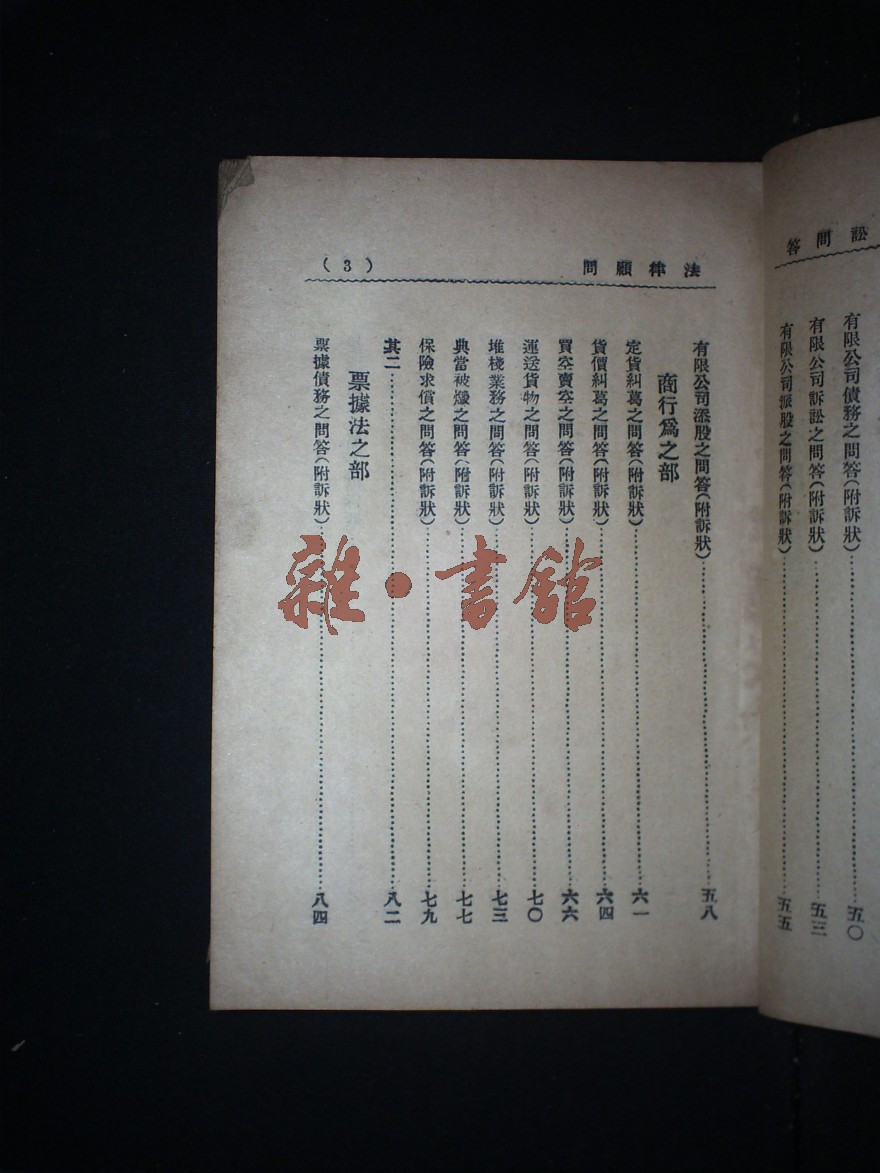 訟問答
有限公司債務之問答(附訴狀)……五〇
有限公司訴訟之問答(附訴狀)……五三
有限公司派股之問答(附訴狀)……五五
法律顧問
(3)
有限公司添股之問答(附訴狀)……五八
商行爲之部
定貨糾葛之問答(附訴狀)……六一
貨價糾葛之問答(附訴狀)……六四
買空賣空之問答(附訴狀)……六六
運送貨物之問答(附訴狀)……七〇
堆棧業務之問答(附訴狀)……七三
典當被燬之問答(附訴狀)……七七
保險求償之問答(附訴狀)……七九
其二……八二
票據法之部
票據債務之問答(附訴狀)……八四
雜·書館